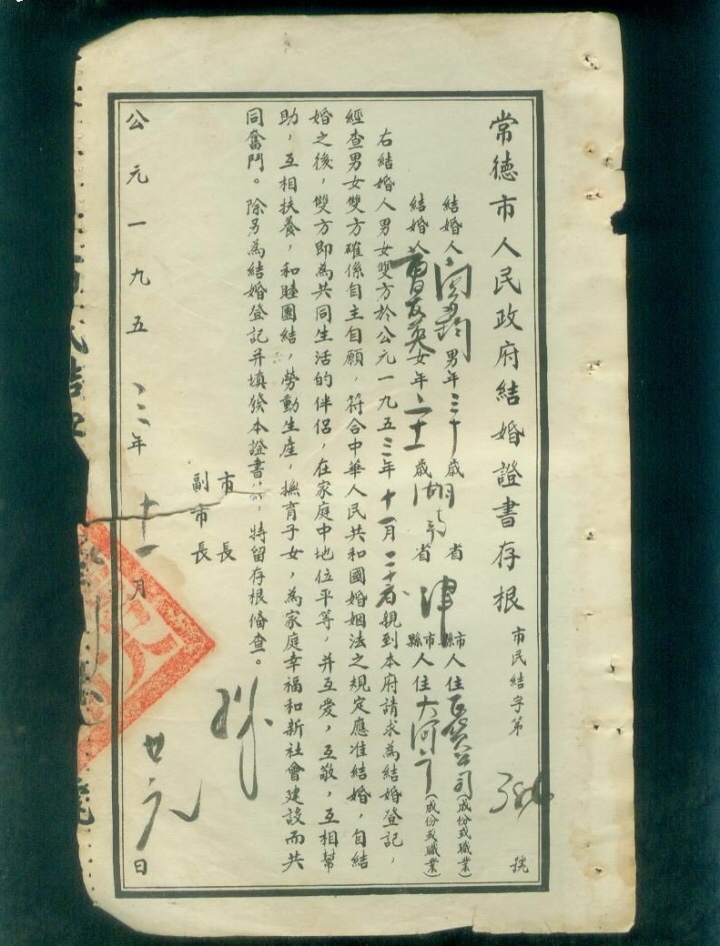 常德市人民政府結婚證書存根
市民結字第 號
結婚人 男年三十歲 省 津 市縣人住百貨公司(成份或職業)
結婚人曹友英女年二十一歲湖南省 市縣人住大河 (成份或職業)
右結婚人男女雙方於公元一九五三年十一月二十 日親到本府請求為結婚登記，
經查男女雙方確係自主自願，符合中華人民共和國婚姻法之規定應准結婚，自結
婚之後，雙方即為共同生活的伴侶，在家庭中地位平等，并互爱，互敬，互相幫
助，互相扶養，和睦團結，勞動生産，撫育子女，為家庭幸福和新社會建設而共
同奮鬥。除另為結婚登記并填發本證書外，特留存根俻查。
市長
副市長
公元一九五三年十一月 日